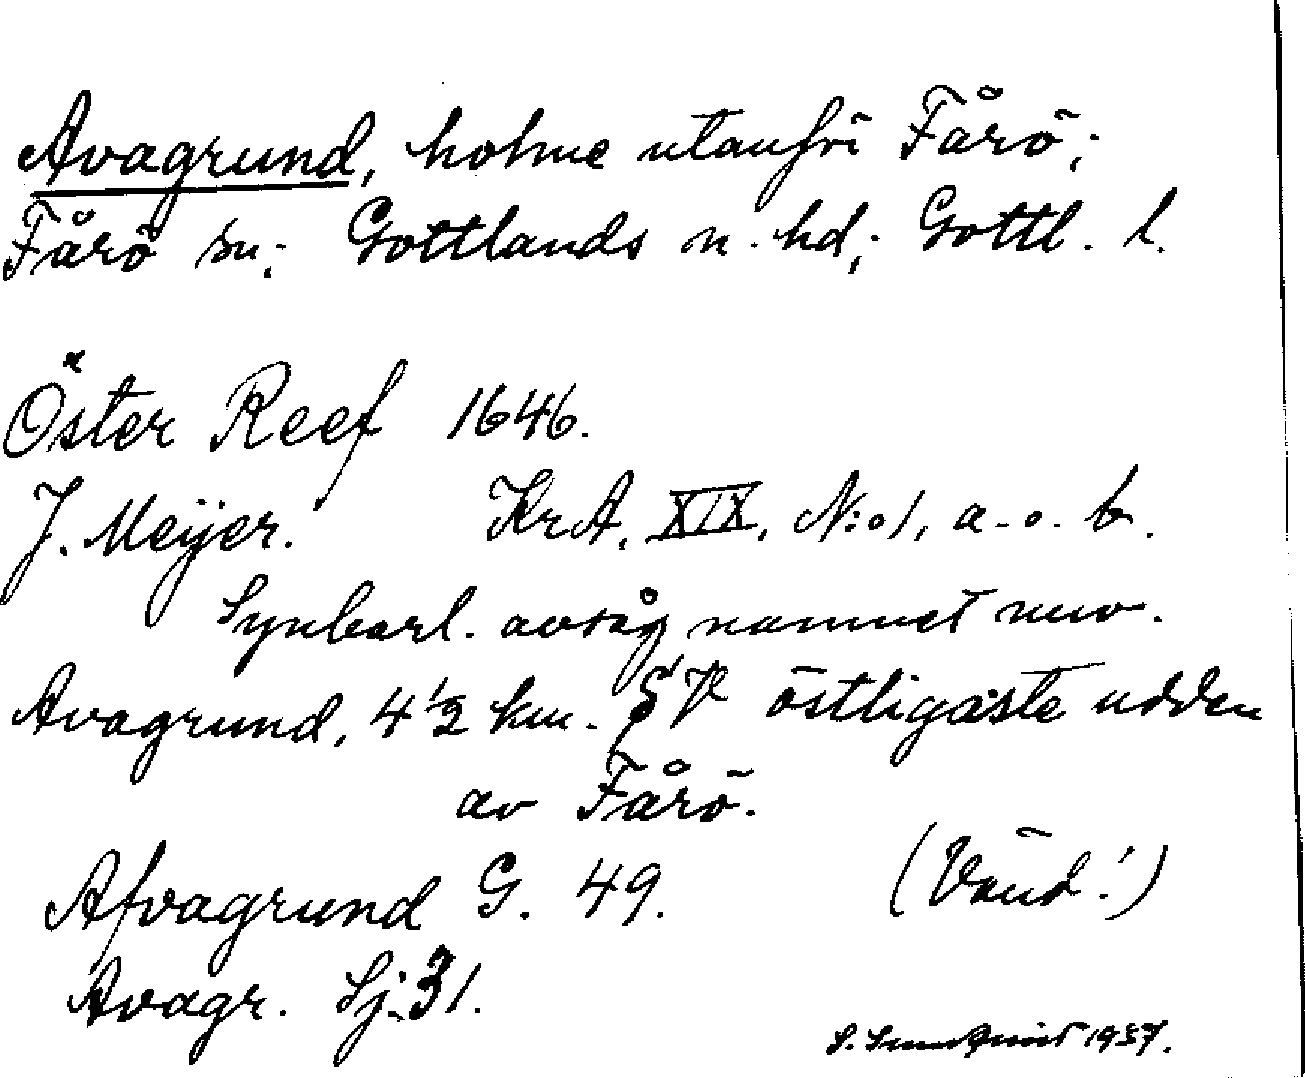 Avagrund, holme utanför Fårö;
Fårö sn; Gottlands n. hd; Gottl. l.
Öster Reef 1646.
J. Meÿer. KrA, XIX, N:o 1, a. o. b.
Synbarl. avsåg namnet nuv.
Avagrund, 4½ km. SV östligaste udden
av Fårö.
Afvagrund G. 49. (Vänd!)
Avagr. Sj. 31.
1937.